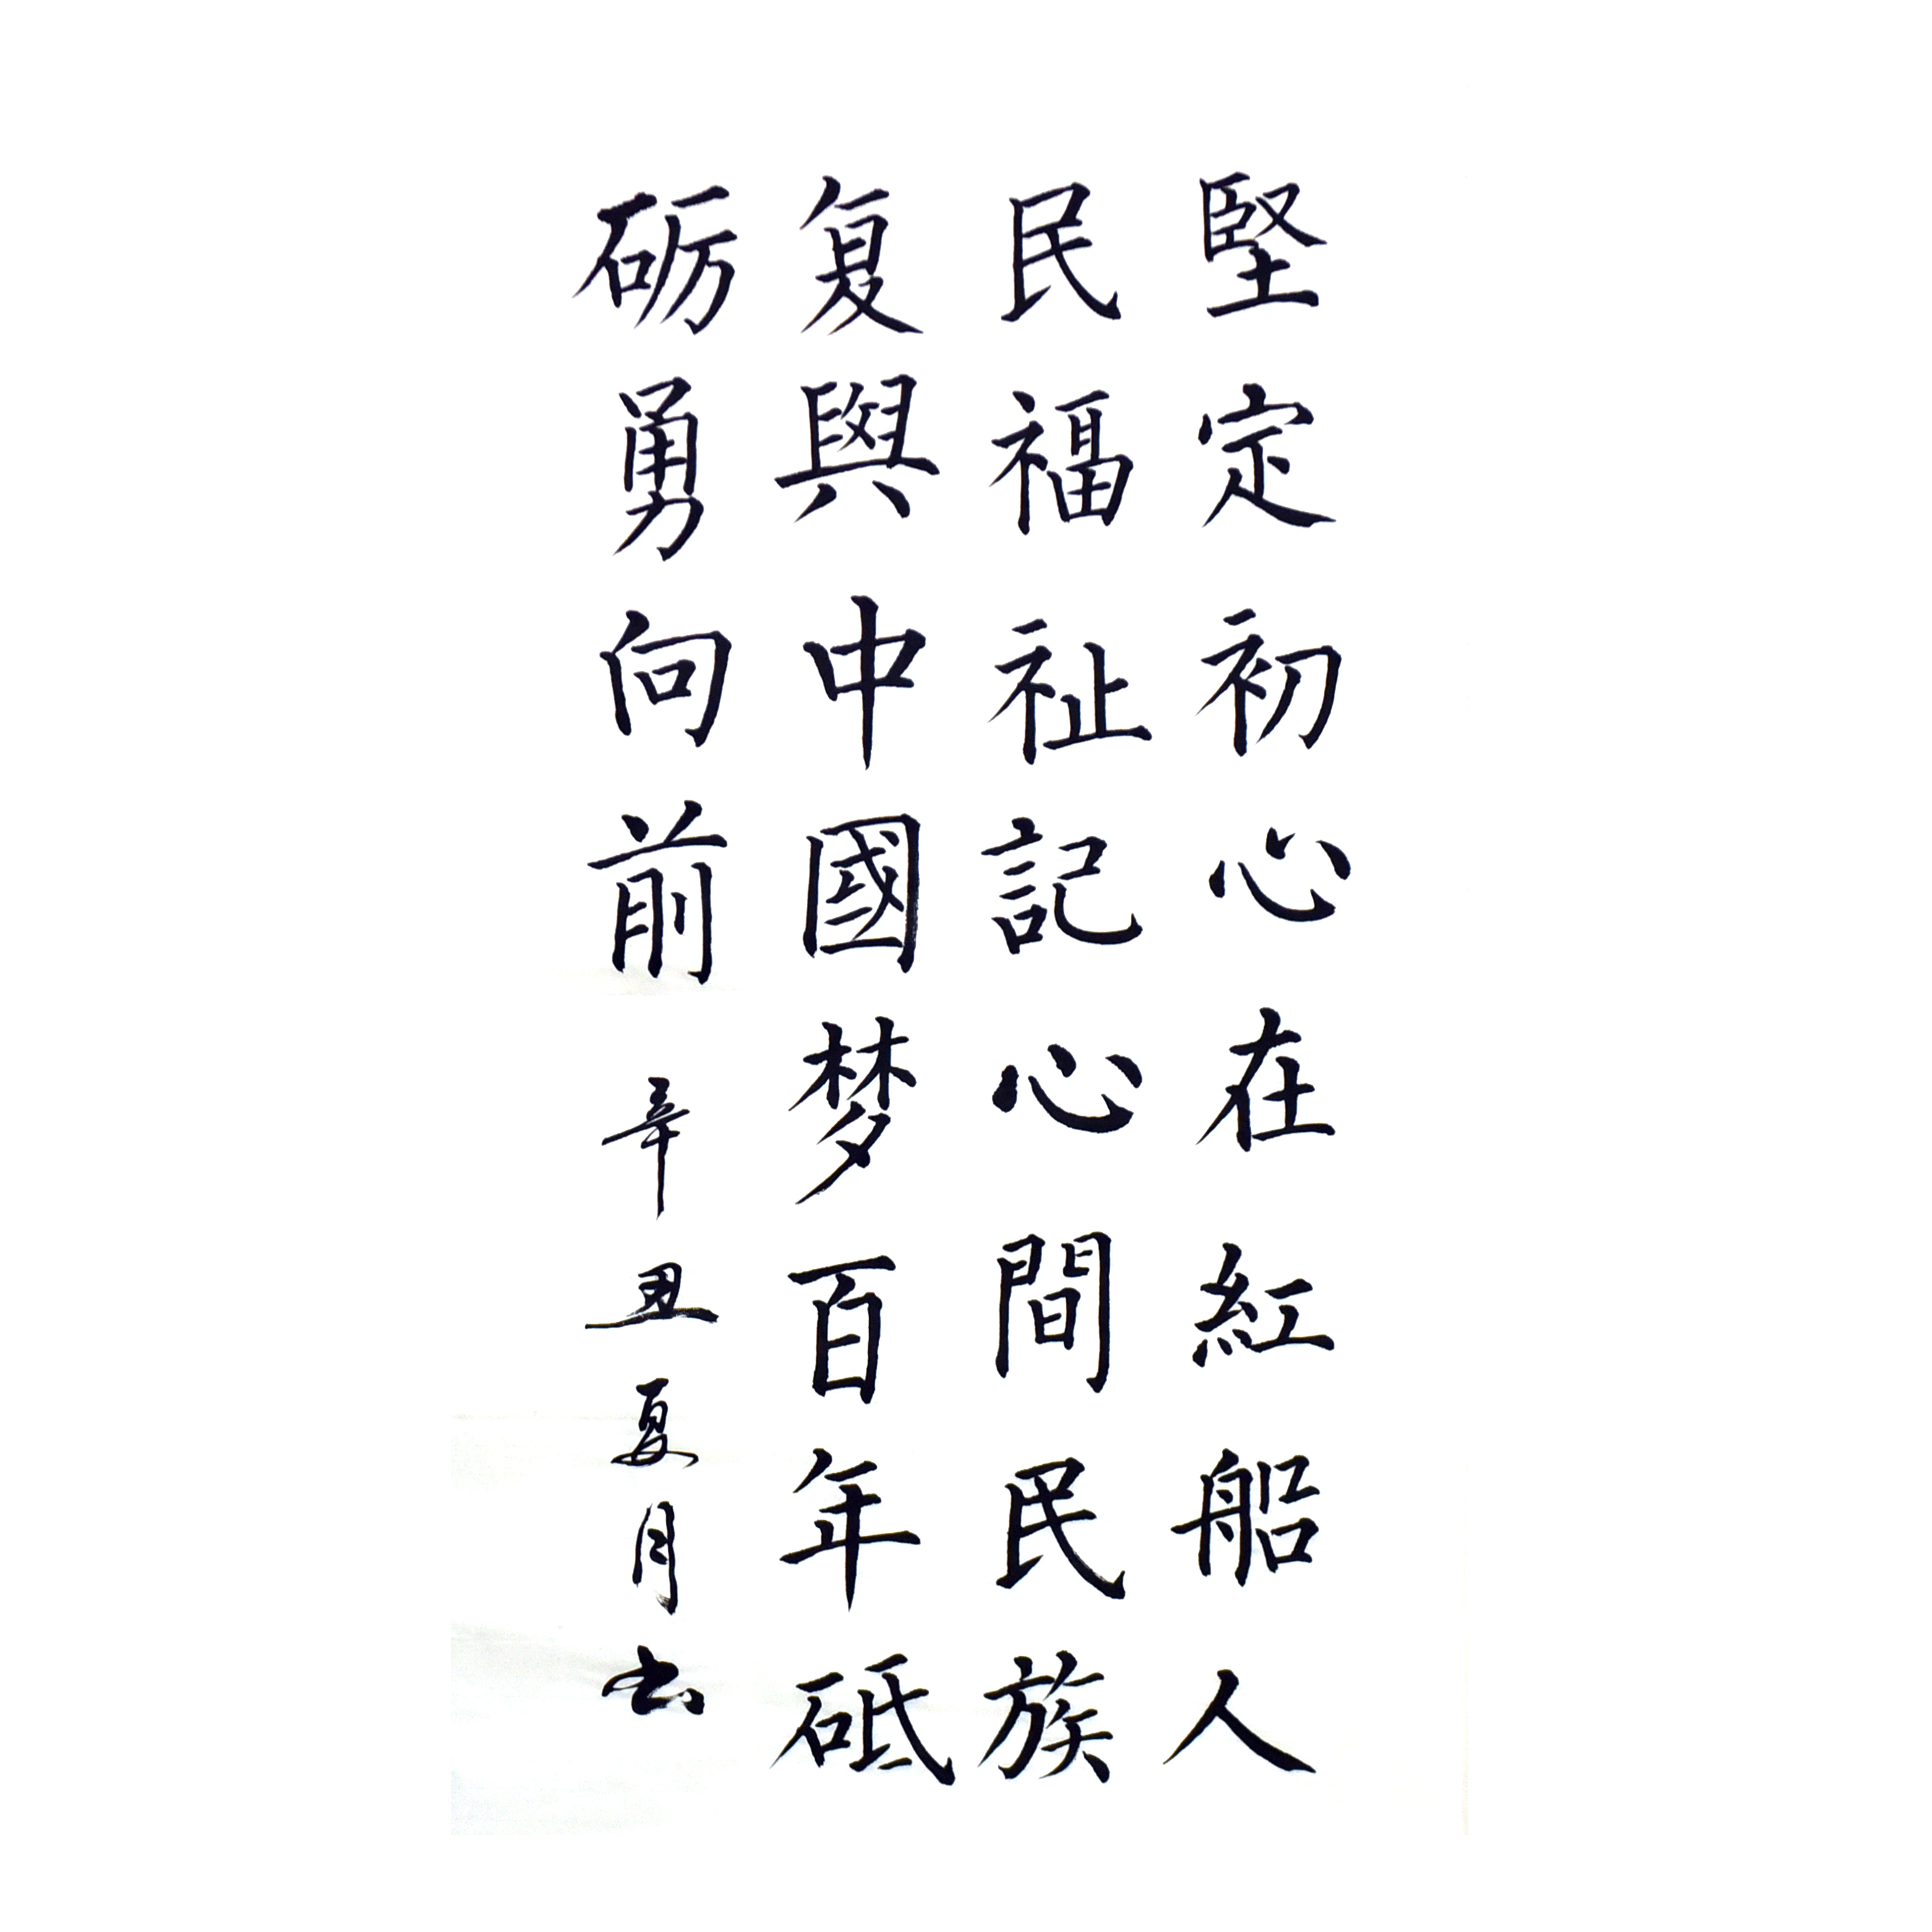 堅定初心在紅船人
民福祉記心間民族
复興中國梦百年砥
砺勇向前 辛丑夏月书